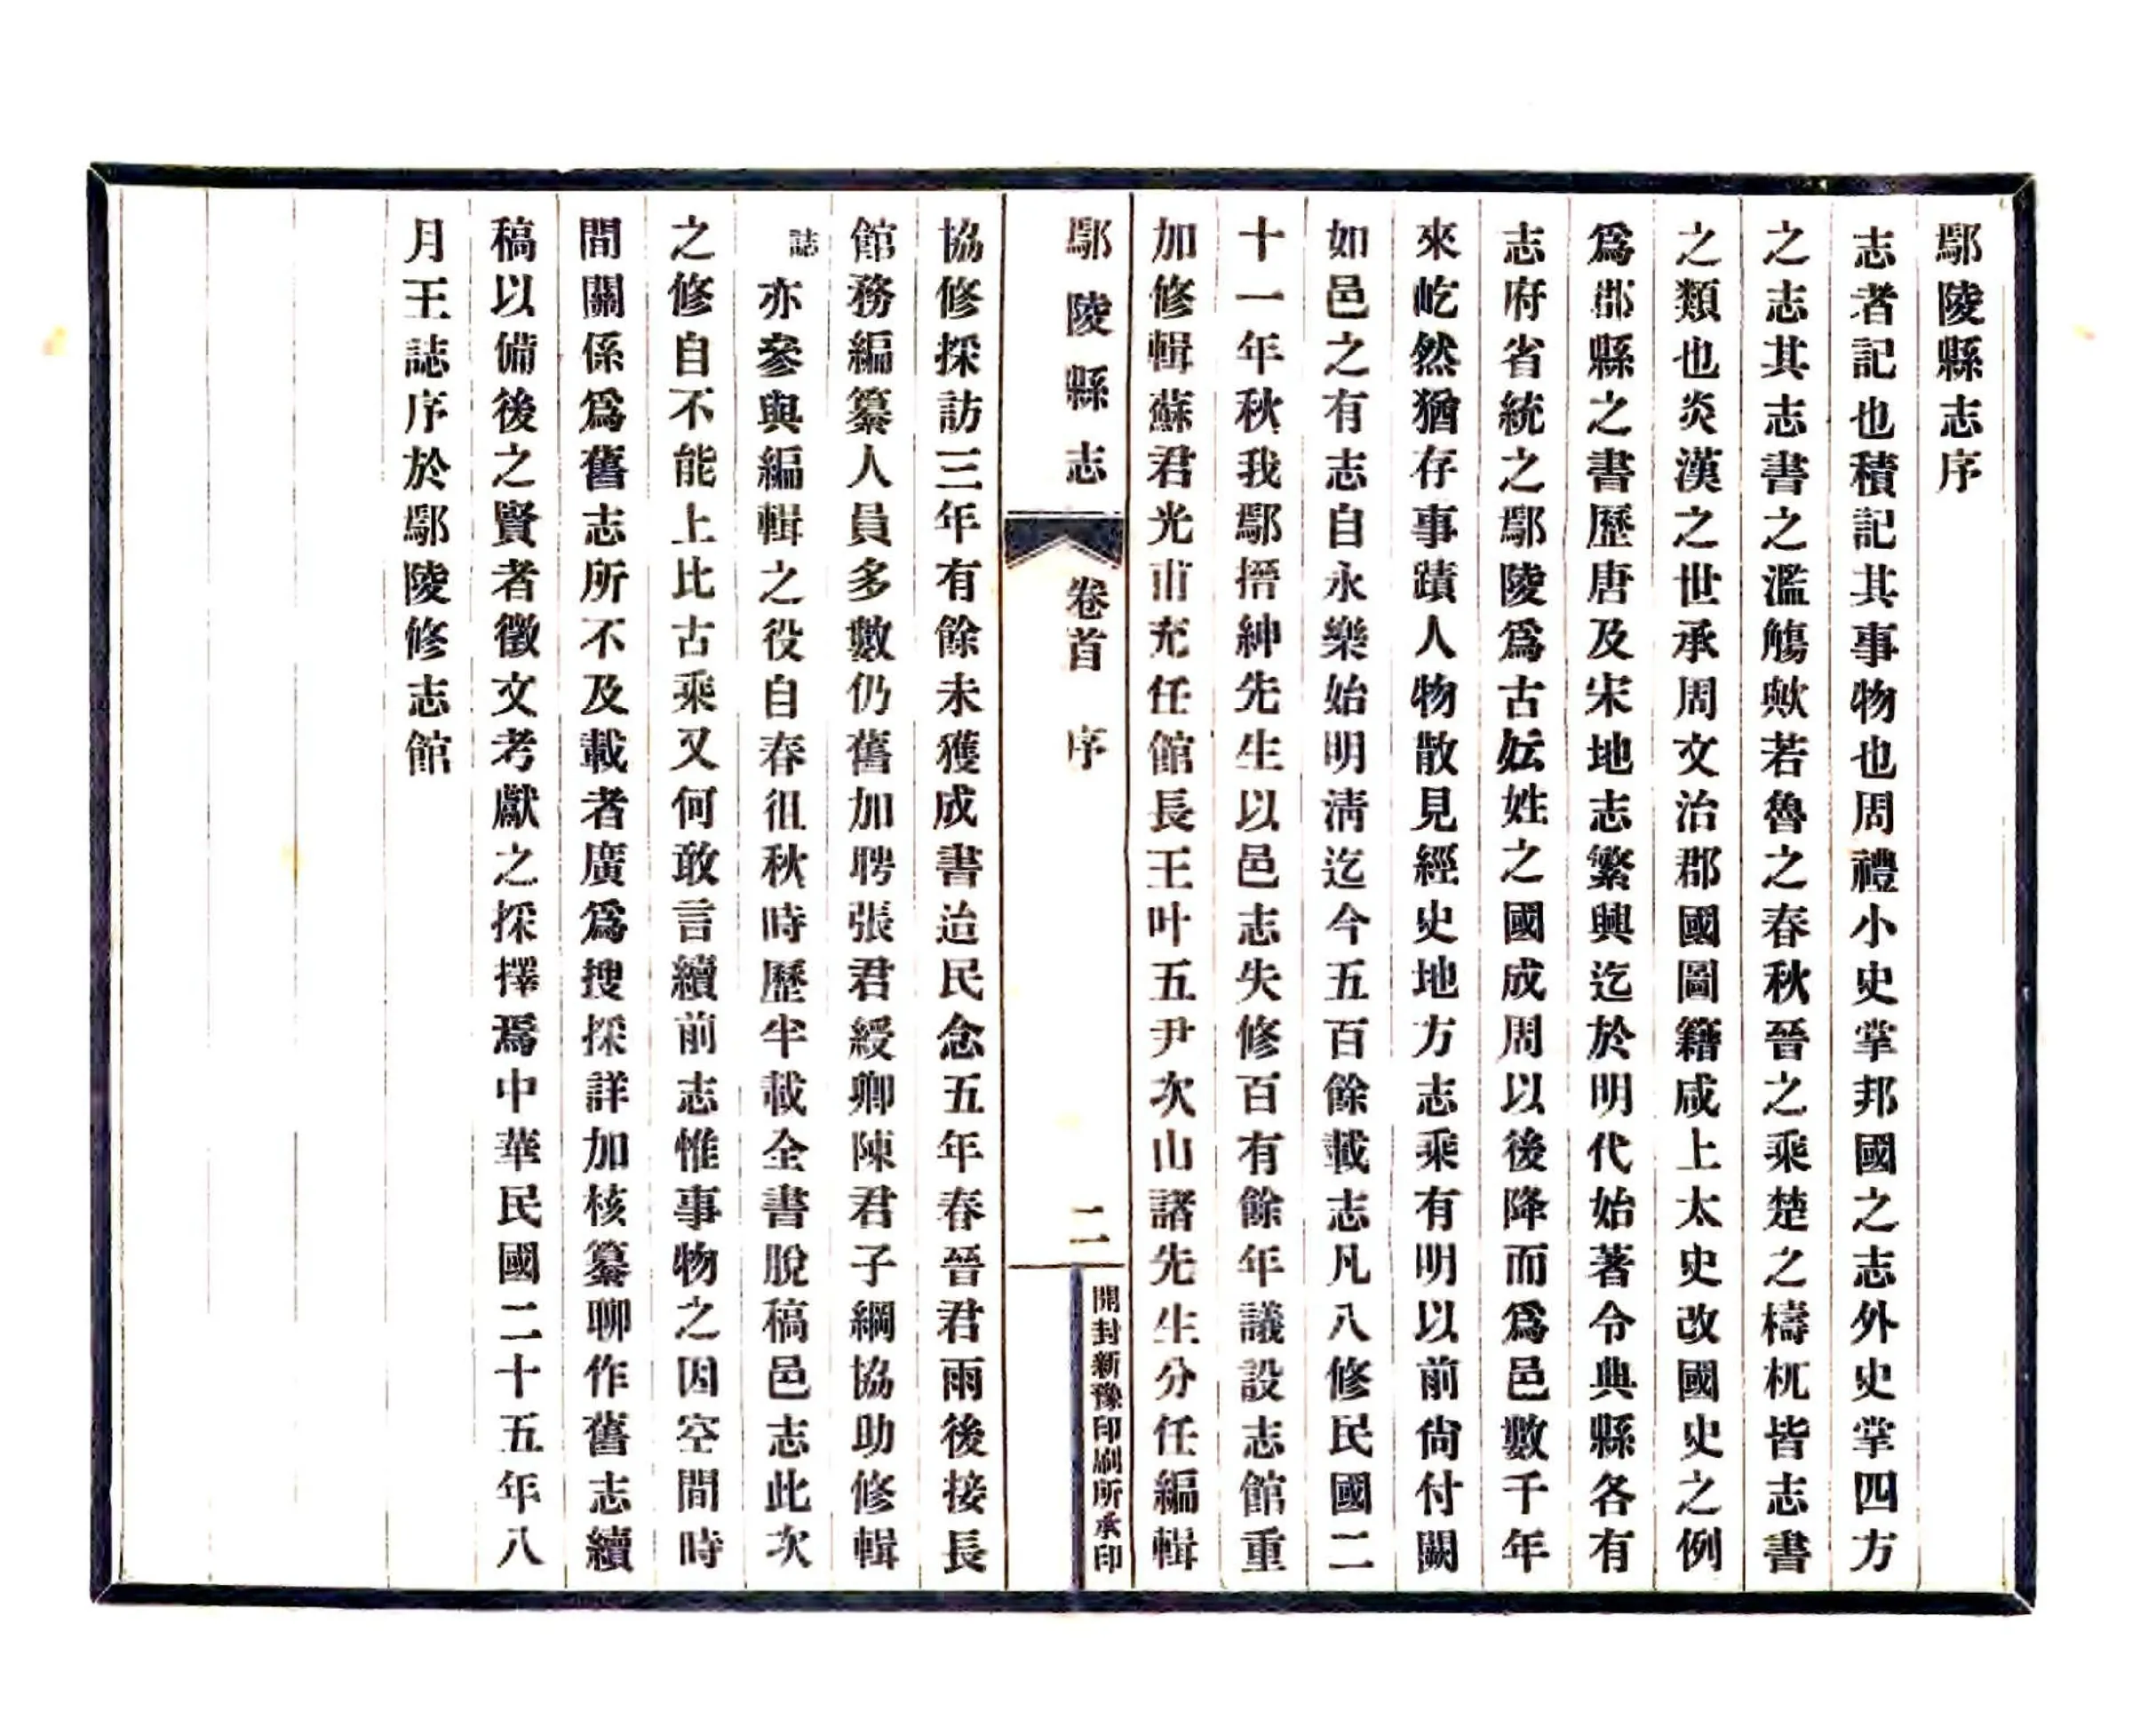 鄢陵縣志序
志者記也積記其事物也周禮小史掌邦國之志外史掌四方
之志其志書之濫觴歟若魯之春秋晉之乘楚之檮杌皆志書
之類也炎漢之世承周文治郡國圖籍咸上太史改國史之例
爲郡縣之書歷唐及宋地志繁興迄於明代始著令典縣各有
志府省統之鄢陵爲古妘姓之國成周以後降而爲邑數千年
來屹然猶存事蹟人物散見經史地方志乘有明以前尙付闕
如邑之有志自永樂始明淸迄今五百餘載志凡八修民國二
十一年秋我鄢搢紳先生以邑志失修百有餘年議設志館重
加修輯蘇君光甫充任館長王叶五尹次山諸先生分任編輯
鄢陵縣志
卷首
序
二
開封新豫印刷所承印
協修採訪三年有餘未獲成書迨民念五年春晉君雨後接長
館務編纂人員多數仍舊加聘張君綬卿陳君子綱協助修輯
誌亦參與編輯之役自春徂秋時歷半載全書脫稿邑志此次
之修自不能上比古乘又何敢言續前志惟事物之因空間時
間關係爲舊志所不及載者廣爲搜採詳加核纂聊作舊志續
稿以備後之賢者徵文考獻之採擇焉中華民國二十五年八
月王誌序於鄢陵修志館